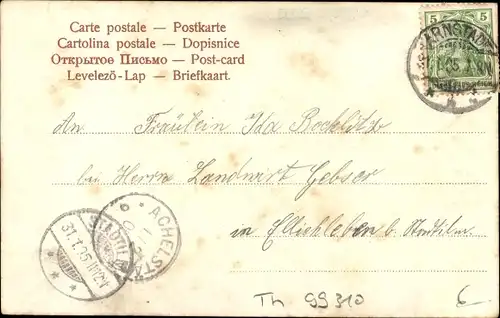 Carte postale — Postkarte
Cartolina postale — Dopisnice
Открытое Письмо — Post-card
Levelező-Lap — Briefkaart.
5 5
ARNSTADT
An Fräulein Ida Bocklitz
bei Herrn Landwirt Gebser
in Ellichleben b. Stadtilm.
ACHELSTÄ
STADTILM
31.1.05
Th 99310
6